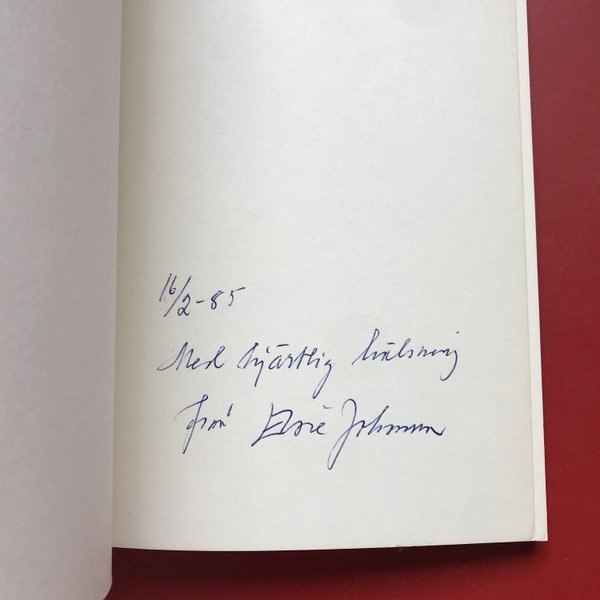 16/2-85
Med hjärtlig hälsning
från Elsie Johansson